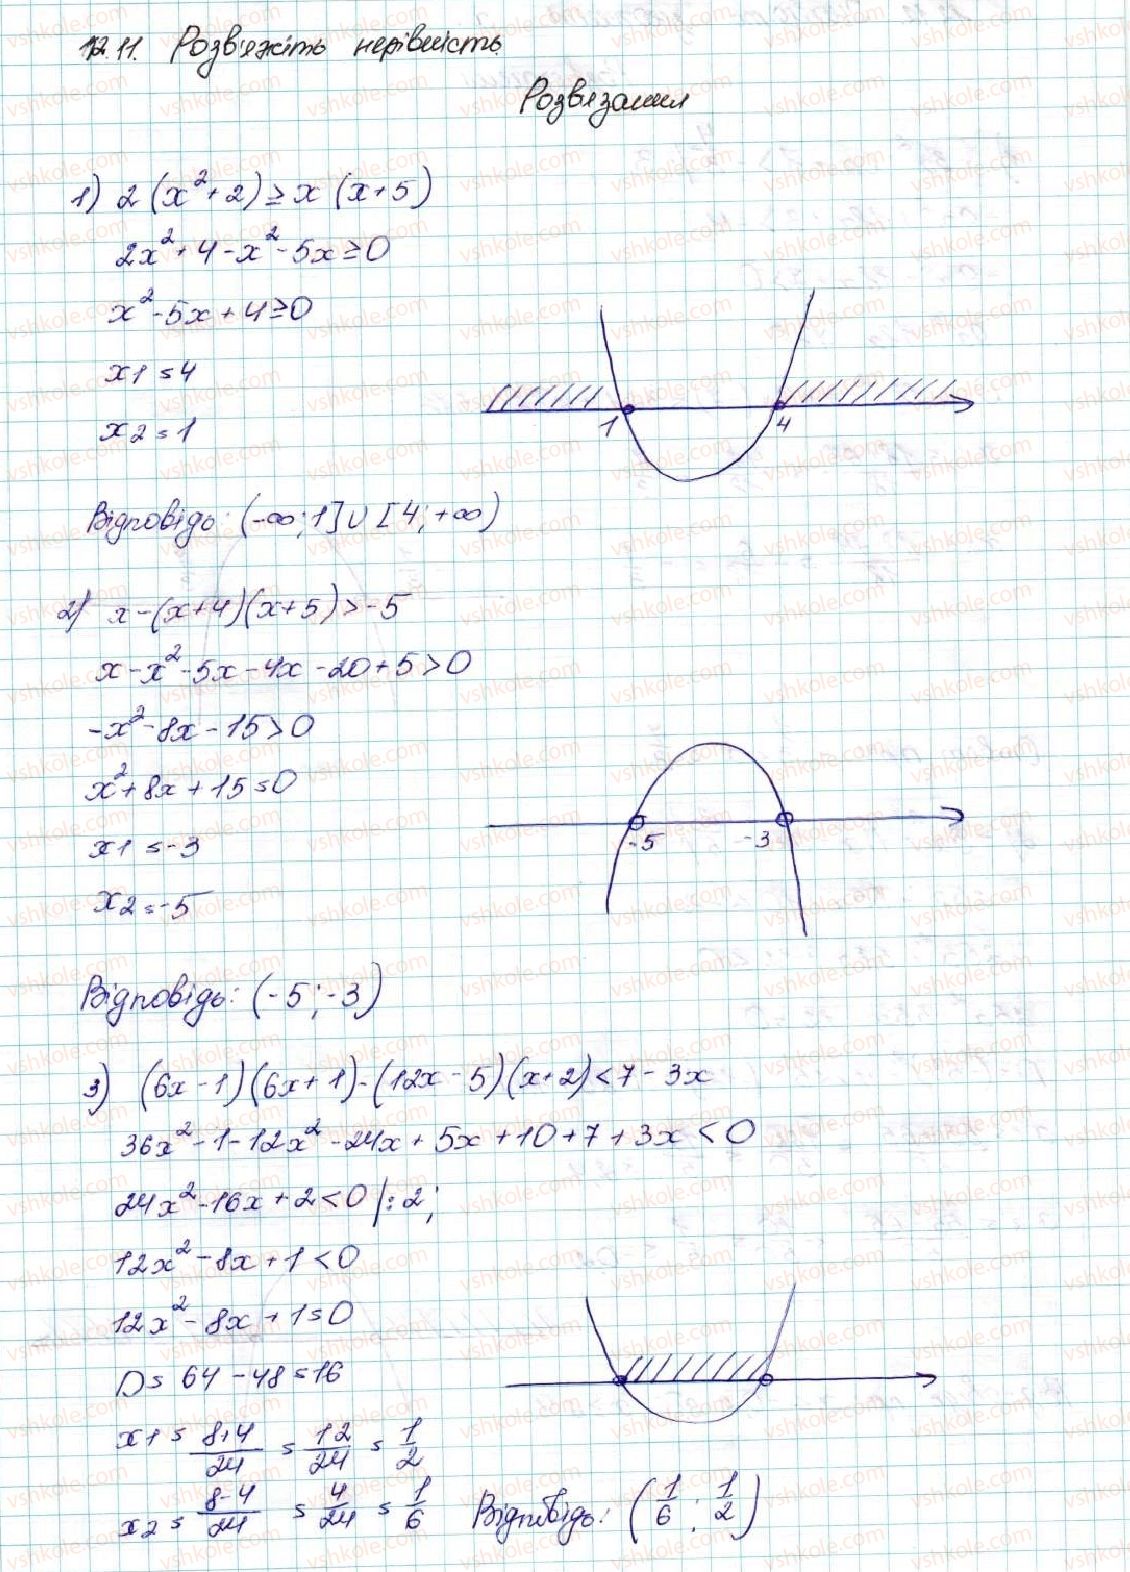 12.11. Розв'яжіть нерівність.
Розв'язання
1) 2(x²+2)≥x(x+5)
2x²+4-x²-5x≥0
x²-5x+4≥0
x1=4
x2=1
1 4
Відповідь: (-∞;1]∪[4;+∞)
2) x-(x+4)(x+5)>-5
x-x²-5x-4x-20+5>0
-x²-8x-15>0
x²+8x+15=0
x1=-3
x2=-5
-5 -3
Відповідь: (-5;-3)
3) (6x-1)(6x+1)-(12x-5)(x+2)<7-3x
36x²-1-12x²-24x+5x+10+7+3x<0
24x²-16x+2<0 |:2;
12x²-8x+1<0
12x²-8x+1=0
D=64-48=16
x1=8+4/24=12/24=1/2
x2=8-4/24=4/24=1/6 Відповідь: (1/6;1/2)